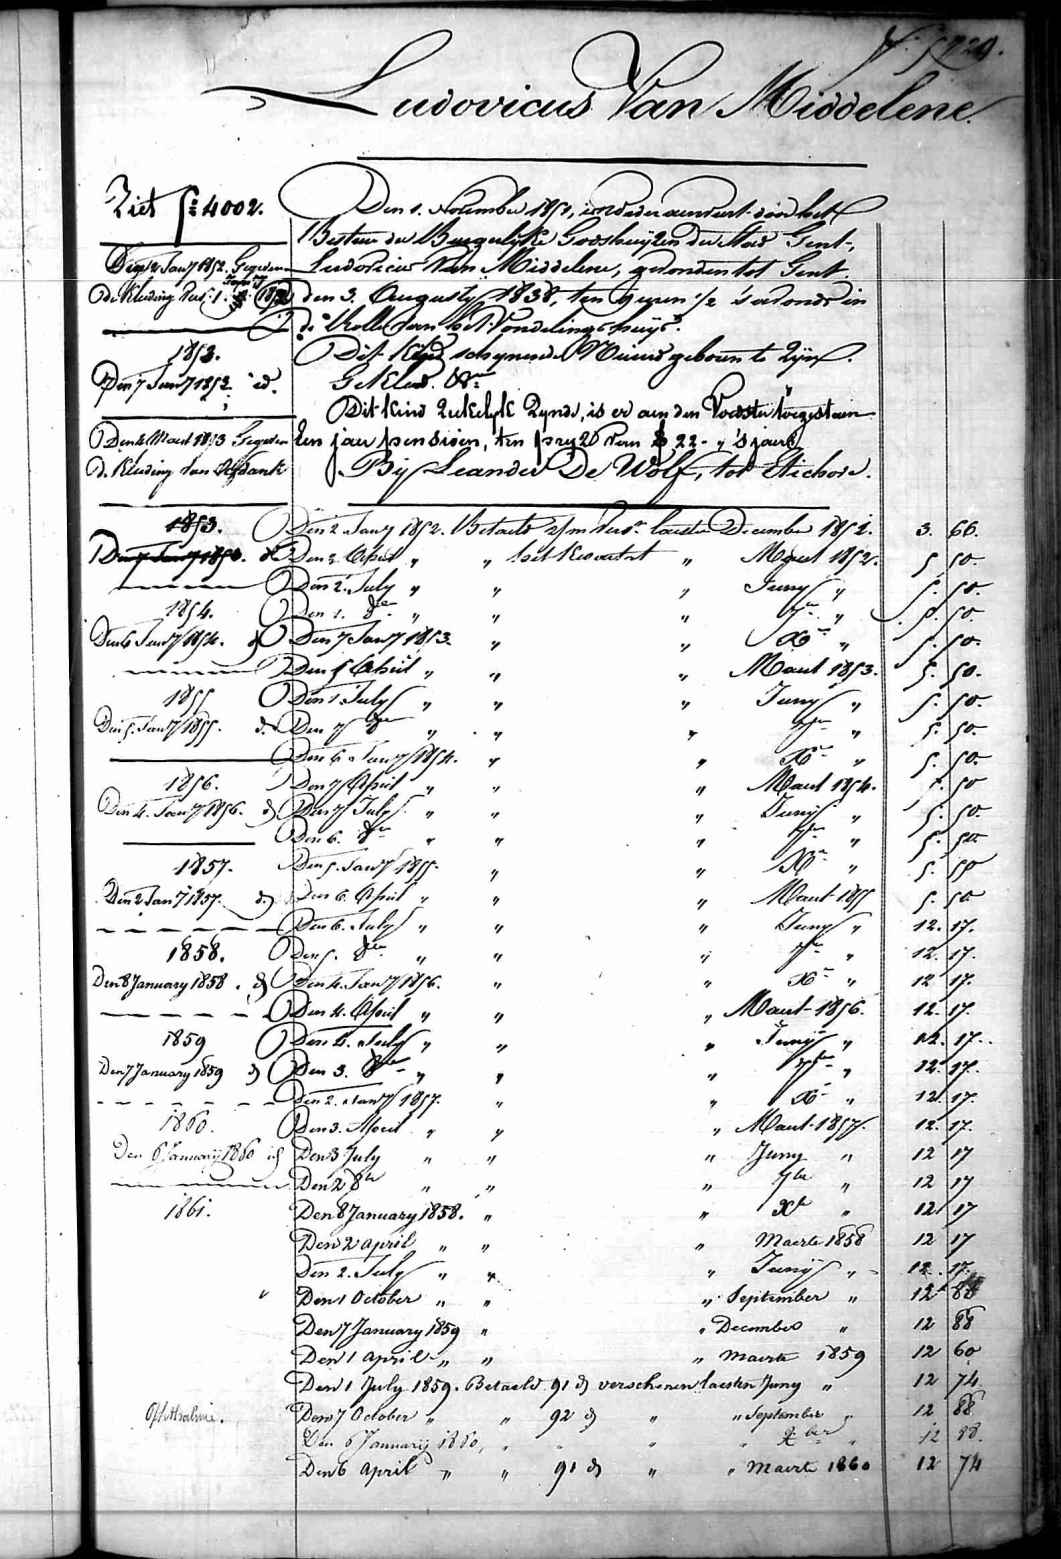 Ludovicus Van Middelene
Ziet f: 4002.
Den 1. November 1851, is weder aenveert door het
Bestuer der Burgerlyke Godshuyzen der Stad Gent,
Ludovicus Van Middelene, gevonden tot Gent
den 3. Augusty 1838, ten uren 1/2 's avonds in
de Rolle van het Vondelingshuys.
Dit Kind schynende Nieuw geboren te Zyn.
Gekleed &a
Dit kind ziekelyk zynde, is er aen den Voedster toegestaen
een jaer pensioen, ten pryze van 22 - " 's jaers
By Leander De Wolf, tot Etichove.
Den 2 Jany 1852. Gegeven
de Kleding
1853.
Den 7 Jany 1853 id.
Den 4 Maert 1853 Gegeven
d. Kleding van
1853.
1854.
Den 6 Jany 1854. d
1855
Den 5. Jany 1855. d.
1856.
Den 4. Jany 1856. d
1857.
Den 2 Jany 1857. d.
1858.
Den 8 January 1858. d
1859
Den 7 January 1859 d
1860.
Den 6 January 1860 id
1861.
Ophthalmie.
Den 2 Jany 1852. Betaeld laesten December 1851. 3. 66.
Den 2 April " " het Kwartaet " Maert 1852. 5. 50.
Den 2. July " " " Juny " 5. 50.
Den 1. 8er " " " 7er " 5. 50.
Den 7 Jany 1853. " " Xer " 5. 50.
Den 5 April " " " Maert 1853. 5. 50.
Den 1. July " " " Juny " 5. 50.
Den 7 8er " " " 7er " 5. 50.
Den 6 Jany 1854. " " Xer " 5. 50.
Den 7 April " " " Maert 1854. 5. 50
Den 7 July " " " Juny " 5. 50.
Den 6. 8er " " " 7er " 5. 50.
Den 5. Jany 1855. " " Xer " 5. 50
Den 6. April " " " Maert 1855 5. 50
Den 6. July " " " Juny " 12. 17.
Den 5. 8er " " " 7er " 12. 17.
Den 4. Jany 1856. " " Xer " 12 17.
Den 4. April " " " Maert 1856. 12. 17.
Den 4. July " " " Juny " 12. 17.
Den 3. 8er " " " 7er " 12. 17.
Den 2. Jany 1857. " " Xer " 12. 17.
Den 3. April " " " Maert 1857. 12. 17.
Den 3 July " " " Juny " 12 17
Den 2 8br " " " 7br " 12 17
Den 8 January 1858. " " Xr " 12 17
Den 2 april " " " Maerte 1858 12 17
Den 2. July " " " Juny " 12. 17.
Den 1 October " " " September " 12 88
Den 7 January 1859 " " December " 12 88
Den 1 april " " " maerte 1859 12 60
Den 1 July 1859. Betaeld 91 d verschenen laesten Juny " 12 74
Den 7 October " " 92 d " " September " 12 88
Den 6 January 1860, " " " " Xber " 12 88.
Den 6 april " " 91 d " " maerte 1860 12 74